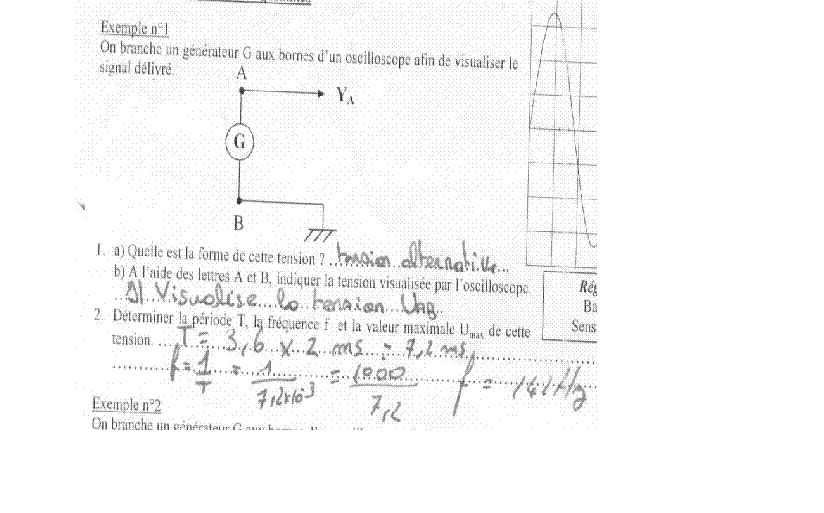 Exemple n°1
On branche un générateur G aux bornes d'un oscilloscope afin de visualiser le
signal délivré.
A
Y_A
G
B
1. a) Quelle est la forme de cette tension ? tension alternative
b) A l'aide des lettres A et B, indiquer la tension visualisée par l'oscilloscope.
Visualise la tension U_AB
2. Déterminer la période T, la fréquence f et la valeur maximale U_max de cette
tension. T = 3,6 x 2 ms = 7,2 ms
f = 1/T = 1/7,2x10^-3 = 1000/7,2 f = Hz
Rég
Ba
Sens
Exemple n°2
On branche un générateur G aux bornes